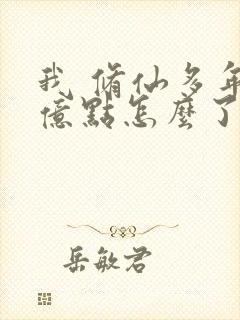 我 脩仙多年
億點怎麼了
岳敏君